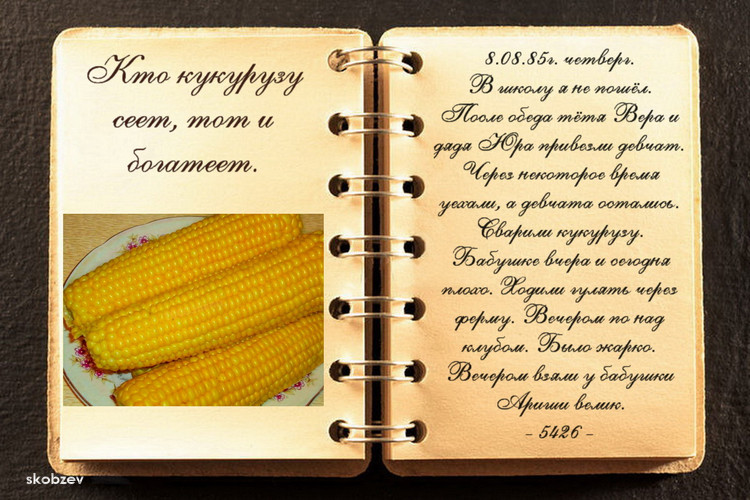 Кто кукурузу
сеет, тот и
богатеет.
8.08.85г. четверг.
В школу я не пошёл.
После обеда тётя Вера и
дядя Юра привезли девчат.
Через некоторое время
уехали, а девчата остались.
Сварили кукурузу.
Бабушке вчера и сегодня
плохо. Ходили гулять через
ферму. Вечером по над
клубом. Было жарко.
Вечером взяли у бабушки
Ариши велик.
- 5426 -
skobzev